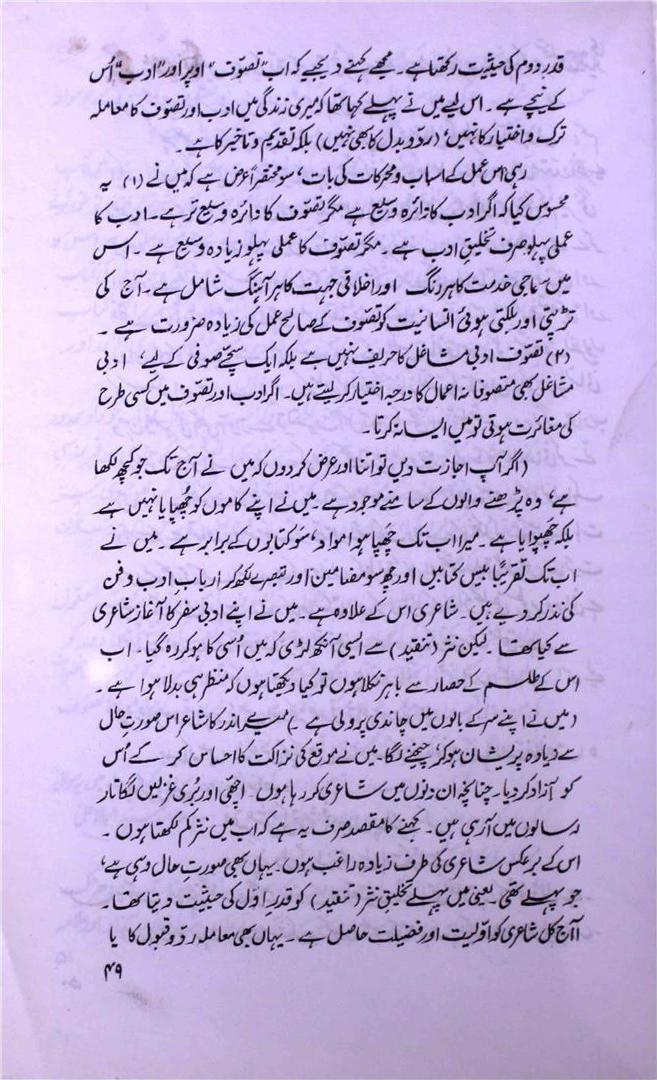 قدرِ دوم کی حیثیت رکھتا ہے۔ مجھے کہنے دیجیے کہ اب "تصوّف" اوپر اور "ادب" اُس
کے نیچے ہے۔ اس لیے میں نے پہلے کہا تھا کہ میری زندگی میں ادب اور تصوّف کا معاملہ
ترک و اختیار کا نہیں، (ردّ و بدل کا بھی نہیں) بلکہ تقدیم و تاخیر کا ہے۔
رہی اس عمل کے اسباب و محرکات کی بات، سو مختصراً عرض ہے کہ میں نے (۱) یہ
محسوس کیا کہ اگر ادب کا دائرہ وسیع ہے مگر تصوّف کا دائرہ وسیع تر ہے۔ ادب کا
عملی پہلو صرف تخلیقِ ادب ہے۔ مگر تصوّف کا عملی پہلو زیادہ وسیع ہے۔ اس
میں سماجی خدمت کا ہر رنگ اور اخلاقی جہت کا ہر آہنگ شامل ہے۔ آج کی
تڑپتی اور بلکتی ہوئی انسانیت کو تصوّف کے صالح عمل کی زیادہ ضرورت ہے۔
(۲) تصوّف ادبی مشاغل کا حریف نہیں ہے بلکہ ایک سچّے صوفی کے لیے، ادبی
مشاغل بھی متصوفانہ اعمال کا درجہ اختیار کر لیتے ہیں۔ اگر ادب اور تصوّف میں کسی طرح
کی مغائرت ہوتی تو میں ایسا نہ کرتا۔
(اگر آپ اجازت دیں تو اتنا اور عرض کر دوں کہ میں نے آج تک جو کچھ لکھا
ہے، وہ پڑھنے والوں کے سامنے موجود ہے۔ میں نے اپنے کاموں کو چُھپایا نہیں ہے
بلکہ چَھپوایا ہے۔ میرا اب تک چَھپا ہوا مواد، سَو کتابوں کے برابر ہے۔ میں نے
اب تک تقریباً بیس کتابیں اور چھ سو مضامین اور تبصرے لکھ کر اربابِ ادب و فن
کی نذر کر دیے ہیں۔ شاعری اس کے علاوہ ہے۔ میں نے اپنے ادبی سفر کا آغاز شاعری
سے کیا تھا۔ لیکن نثر (تنقید) سے ایسی آنکھ لڑی کہ میں اُسی کا ہو کر رہ گیا۔ اب
اس کے طلسم کے حصار سے باہر نکلا ہوں تو کیا دیکھتا ہوں کہ منظر ہی بدلا ہوا ہے۔
(میں نے اپنے سر کے بالوں میں چاندی پرو لی ہے) میرے اندر کا شاعر اس صورتِ حال
سے زیادہ پریشان ہو کر، چیخنے لگا۔ میں نے موقع کی نزاکت کا احساس کر کے اُس
کو آزاد کر دیا۔ چنانچہ ان دنوں میں شاعری کر رہا ہوں۔ اچھی اور بُری غزلیں لگاتار
رسالوں میں آ رہی ہیں۔ کہنے کا مقصد صرف یہ ہے کہ اب میں نثر کم لکھتا ہوں۔
اس کے برعکس شاعری کی طرف زیادہ راغب ہوں۔ یہاں بھی صورتِ حال وہی ہے،
جو پہلے تھی۔ یعنی میں پہلے تخلیقِ نثر (تنقید) کو قدرِ اوّل کی حیثیت دیتا تھا۔
آج کل شاعری کو اوّلیت اور فضیلت حاصل ہے۔ یہاں بھی معاملہ ردّ و قبول کا یا
۴۹